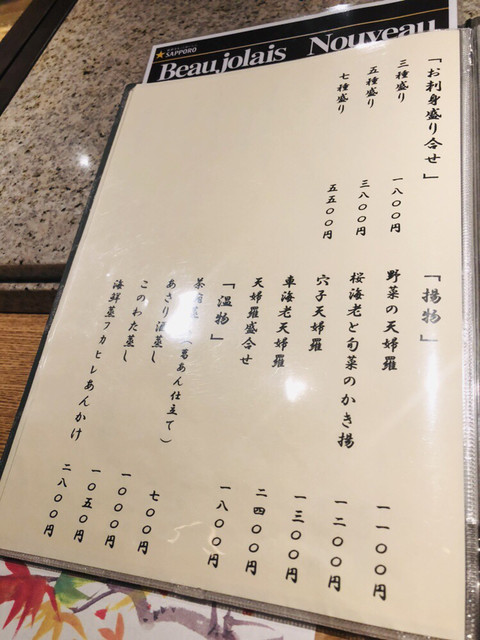 SAPPORO
Beaujolais Nouveau
「お刺身盛り合せ」
三種盛り 一八〇〇円
五種盛り 三八〇〇円
七種盛り 五五〇〇円
「揚物」
野菜の天婦羅 一一〇〇円
桜海老と旬菜のかき揚 一二〇〇円
穴子天婦羅 一三〇〇円
車海老天婦羅 二四〇〇円
天婦羅盛合せ 一八〇〇円
「温物」
茶碗蒸し（葛あん仕立て） 七〇〇円
あさり酒蒸し 一〇〇〇円
このわた蒸し 一〇五〇円
海鮮蒸フカヒレあんかけ 二八〇〇円